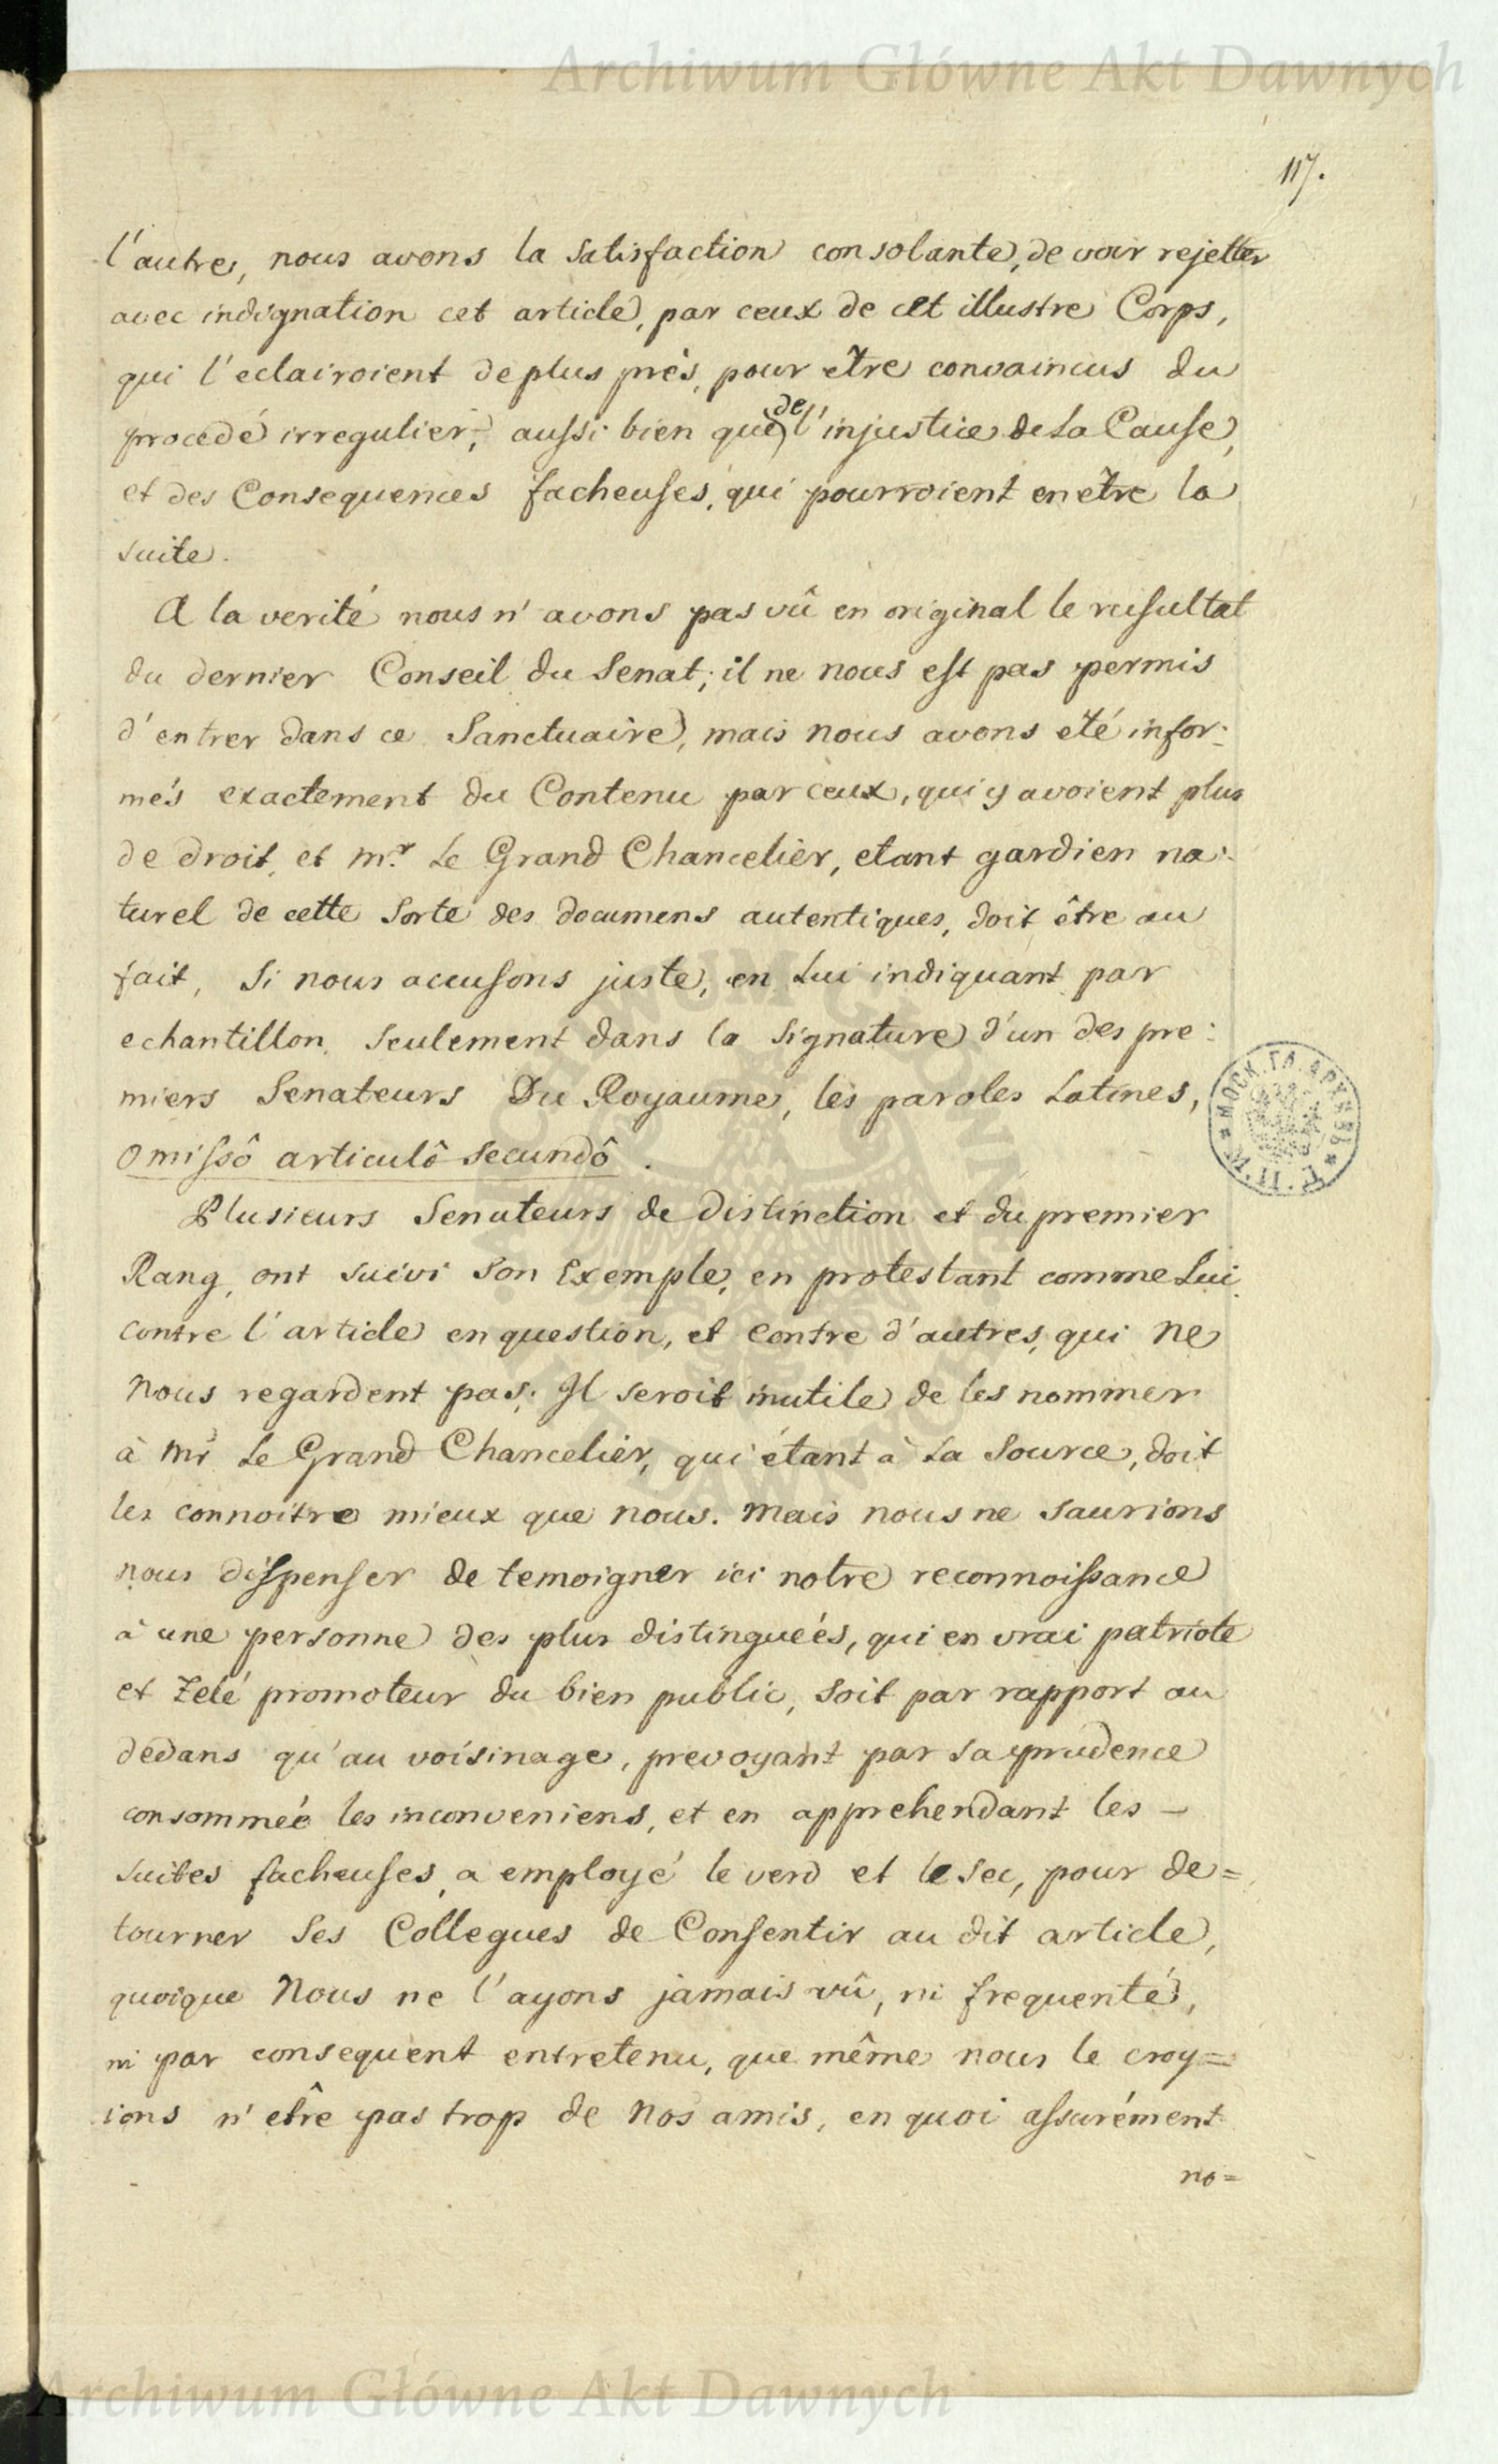 Archiwum Główne Akt Dawnych
117.
l'autre, nous avons la Satisfaction consolante, de voir rejetter
avec indignation cet article, par ceux de cet illustre Corps,
qui l'eclairoient de plus près, pour etre convaincus du
procedé irregulier, aussi bien que de l'injustice de La Cause,
et des Consequences facheuses, qui pourroient en etre la
suite.
A la verité nous n'avons pas vû en original le resultat
du dernier Conseil du Senat; il ne nous est pas permis
d'entrer dans ce Sanctuaire, mais nous avons eté infor:
més exactement du Contenu par ceux, qui y avoient plus
de droit, et mr. Le Grand Chancelier, etant gardien na:
turel de cette Sorte des documens autentiques, doit être au
fait, Si nous accusons juste, en Lui indiquant par
echantillon, Seulement dans la Signature d'un des pre:
miers Senateurs Du Royaume, les paroles Latines,
omissô articulô secundô.
Plusieurs Senateurs de Distinction et du premier
Rang, ont suivi Son Exemple, en protestant comme Lui
contre l'article en question, et contre d'autres, qui ne
nous regardent pas. Il seroit inutile de les nommer
à Mr Le Grand Chancelier, qui étant à La Source, doit
les connoitre mieux que nous. Mais nous ne saurions
nous dispenser de temoigner ici notre reconnoissance
à une personne des plus distinguées, qui en vrai patriote
et Zelé promoteur du bien public, Soit par rapport au
dedans qu'au voisinage, prevoyant par sa prudence
consommée les inconveniens, et en apprehendant les –
suites facheuses, a employé le verd et le sec, pour de=
tourner Ses Collegues de Consentir au dit article,
quoique Nous ne l'ayons jamais vû, ni frequenté,
ni par consequent entretenu, que même nous le croy=
ions n'etre pas trop de Nos amis, en quoi assurément
no=
М.Г.П. МОСК.ГЛ.АРХИВЪ
Archiwum Główne Akt Dawnych